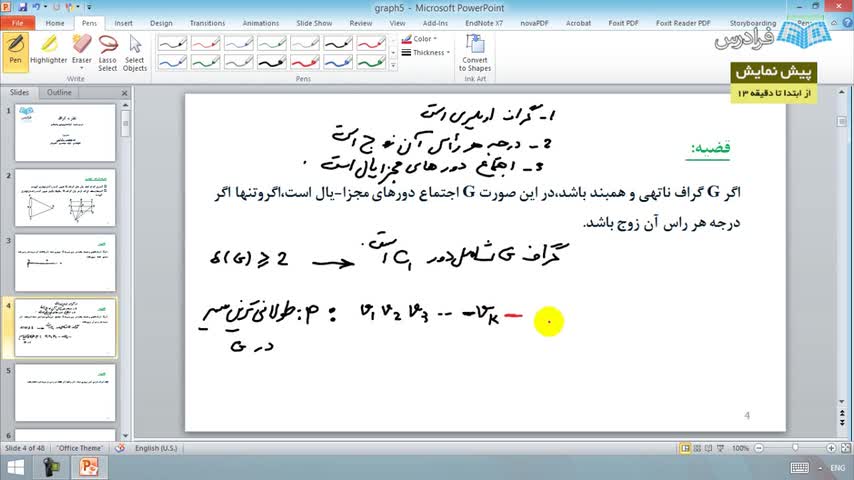 graph5 - Microsoft PowerPoint
File Home Pens Insert Design Transitions Animations Slide Show Review View Add-Ins EndNote X7 novaPDF Acrobat Foxit PDF Foxit Reader PDF Storyboarding
Pen Highlighter Eraser Lasso Select Select Objects
Color
Thickness
Convert to Shapes
Write Pens Ink Art
فرادرس
پیش نمایش
از ابتدا تا دقیقه ۱۳
Slides Outline
1- گراف اویلری است
2- درجه هر رأس آن زوج است
3- اجتماع دورهای مجزا یال است .
قضیه:
اگر G گراف ناتهی و همبند باشد،در این صورت G اجتماع دورهای مجزا-یال است،اگروتنها اگر
درجه هر راس آن زوج باشد.
δ(G) ⩾ 2 → گراف G شامل دور C1 است.
P: طولانی ترین مسیر : v1 v2 v3 -- - vk -
در G
4
1
2
3
4
5
6
Slide 4 of 48 "Office Theme" English (U.S.) 100%
ENG